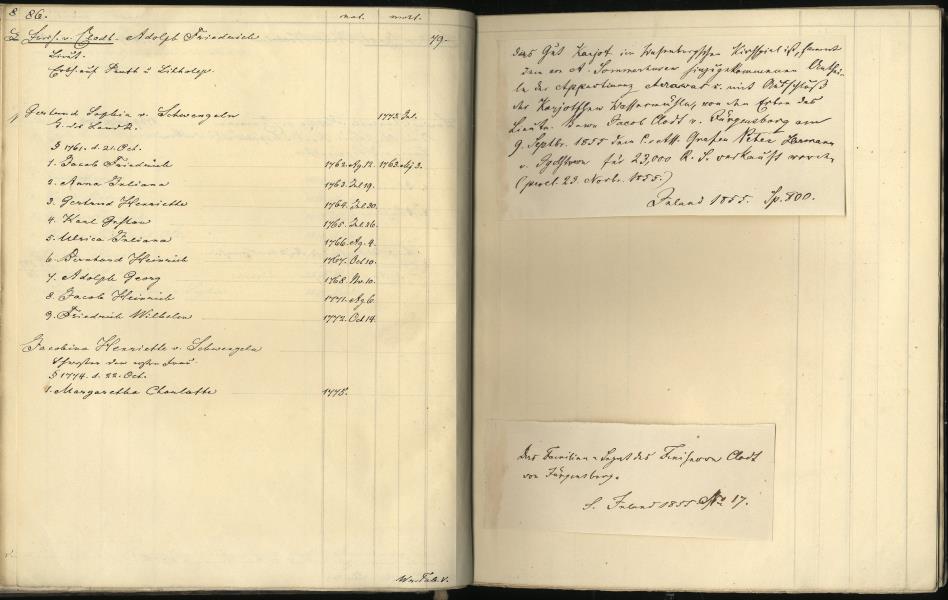 86.
nat. mort.
v. Clodt. Adolph Friedrich 79.
Lieut.
Erbh. auf
Gertrud Sophia v. Schwengeln 1773. Jul.
§ 1761. d. 21. Oct.
1. Jacob Friedrich 1762. Ag. 12. 1763. Ag. 3.
2. Anna Juliana 1763. Jul 19.
3. Gertrud Henriette 1764. Jul. 30.
4. Karl Gustav 1765. Jul. 26.
5. Ulrica Juliana 1766. Ag. 4.
6. Bernhard Heinrich 1767. Oct 10.
7. Adolph Georg 1768. Nv. 10.
8. Jacob Heinrich 1771. Ag. 6.
9. Friedrich Wilhelm 1772. Oct 14.
Jacobina Henriette v. Schwengeln
Schwester der ersten Frau
§ 1774. d. 22. Oct.
1. Margaretha Charlotte 1775.
das Gut in Wesenbergschen Kirchspiel ist, sammt
den von A. Sommerhusen hinzugekommenen Anthei-
le der Appertinenz u. mit Ausschluß
der von den Erben des
Lieuts. Baron Jacob Clodt v. Jürgensburg am
9. Septbr. 1855 dem Grafen Peter Hermann
v. für 23,000 R. S. verkauft worden
(procl. 23. Novbr. 1855.)
Inland 1855. Sp. 800.
Das Familien-Legat des Freiherrn Clodt
von Jürgensburg.
S. Inland 1855 No 17.